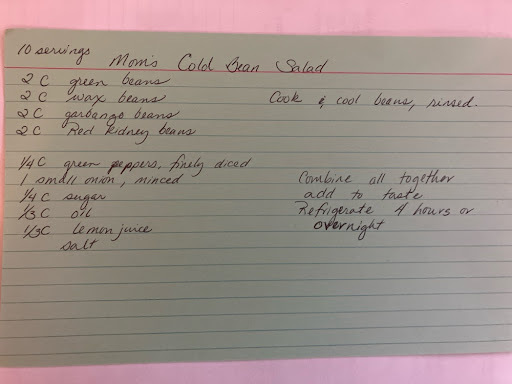 10 servings
Mom's Cold Bean Salad
2 C green beans
2 C wax beans
2 C garbango beans
2 C Red Kidney beans
Cook & cool beans, rinsed.
1/4 C green peppers, finely diced
1 small onion, minced
1/4 C sugar
1/3 C oil
1/3 C lemon juice
salt
Combine all together
add to taste
Refrigerate 4 hours or
overnight